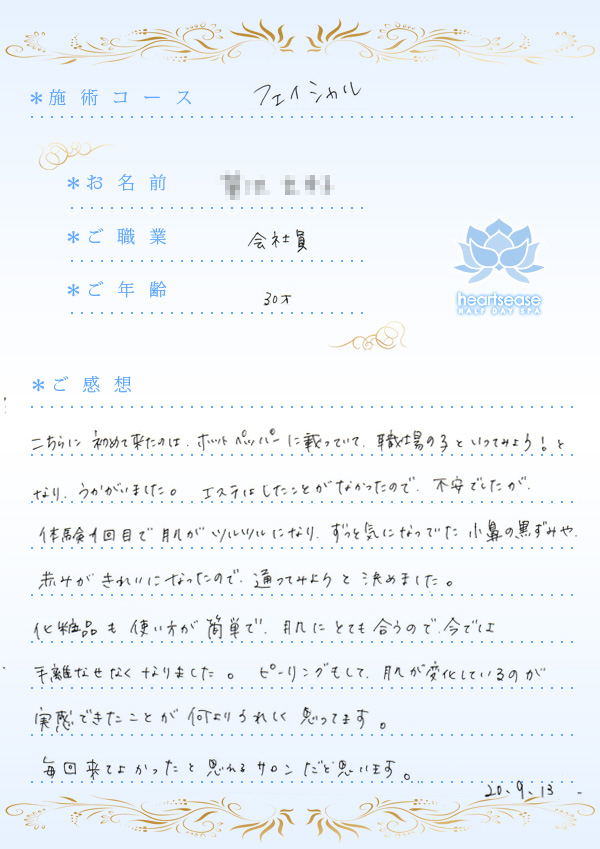 ＊施術コース フェイシャル
＊お名前
＊ご職業 会社員
＊ご年齢 30才
heartsease
HALF DAY SPA
＊ご感想
こちらに初めて来たのは、ホットペッパーに載っていて、職場の子といってみよう！と
なり、うかがいました。 エステはしたことがなかったので、不安でしたが、
体験1回目で肌がツルツルになり、ずっと気になってた小鼻の黒ずみや、
赤みがきれいになったので、通ってみようと決めました。
化粧品も使い方が簡単で、肌にとても合うので、今では
手離なせなくなりました。 ピーリングもして、肌が変化しているのが
実感できたことが何よりうれしく思ってます。
毎回来てよかったと思えるサロンだと思います。
20、9、13